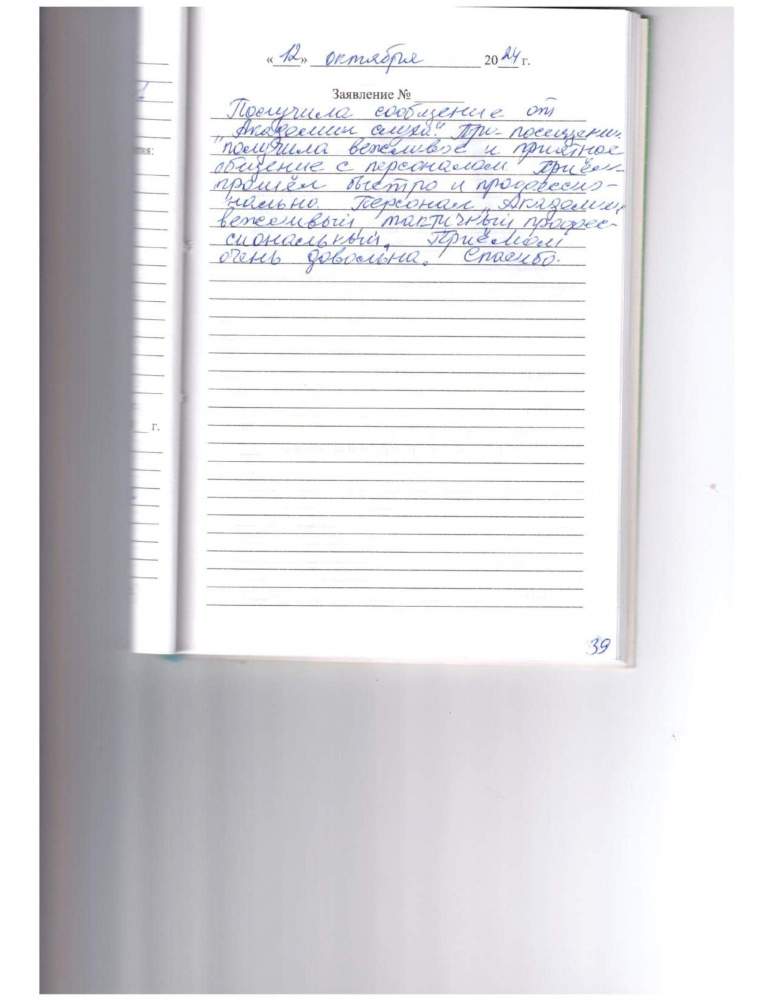 « 12 » октября 2024 г.
Заявление №
Получила сообщение от
„Академии слуха". При посещении
получила вежливое и приятное
общение с персоналом Приём
прошёл быстро и профессио-
нально. Персонал „Академии
вежливый тактичный профес-
сиональный. Приёмом
очень довольна. Спасибо.
г.
39